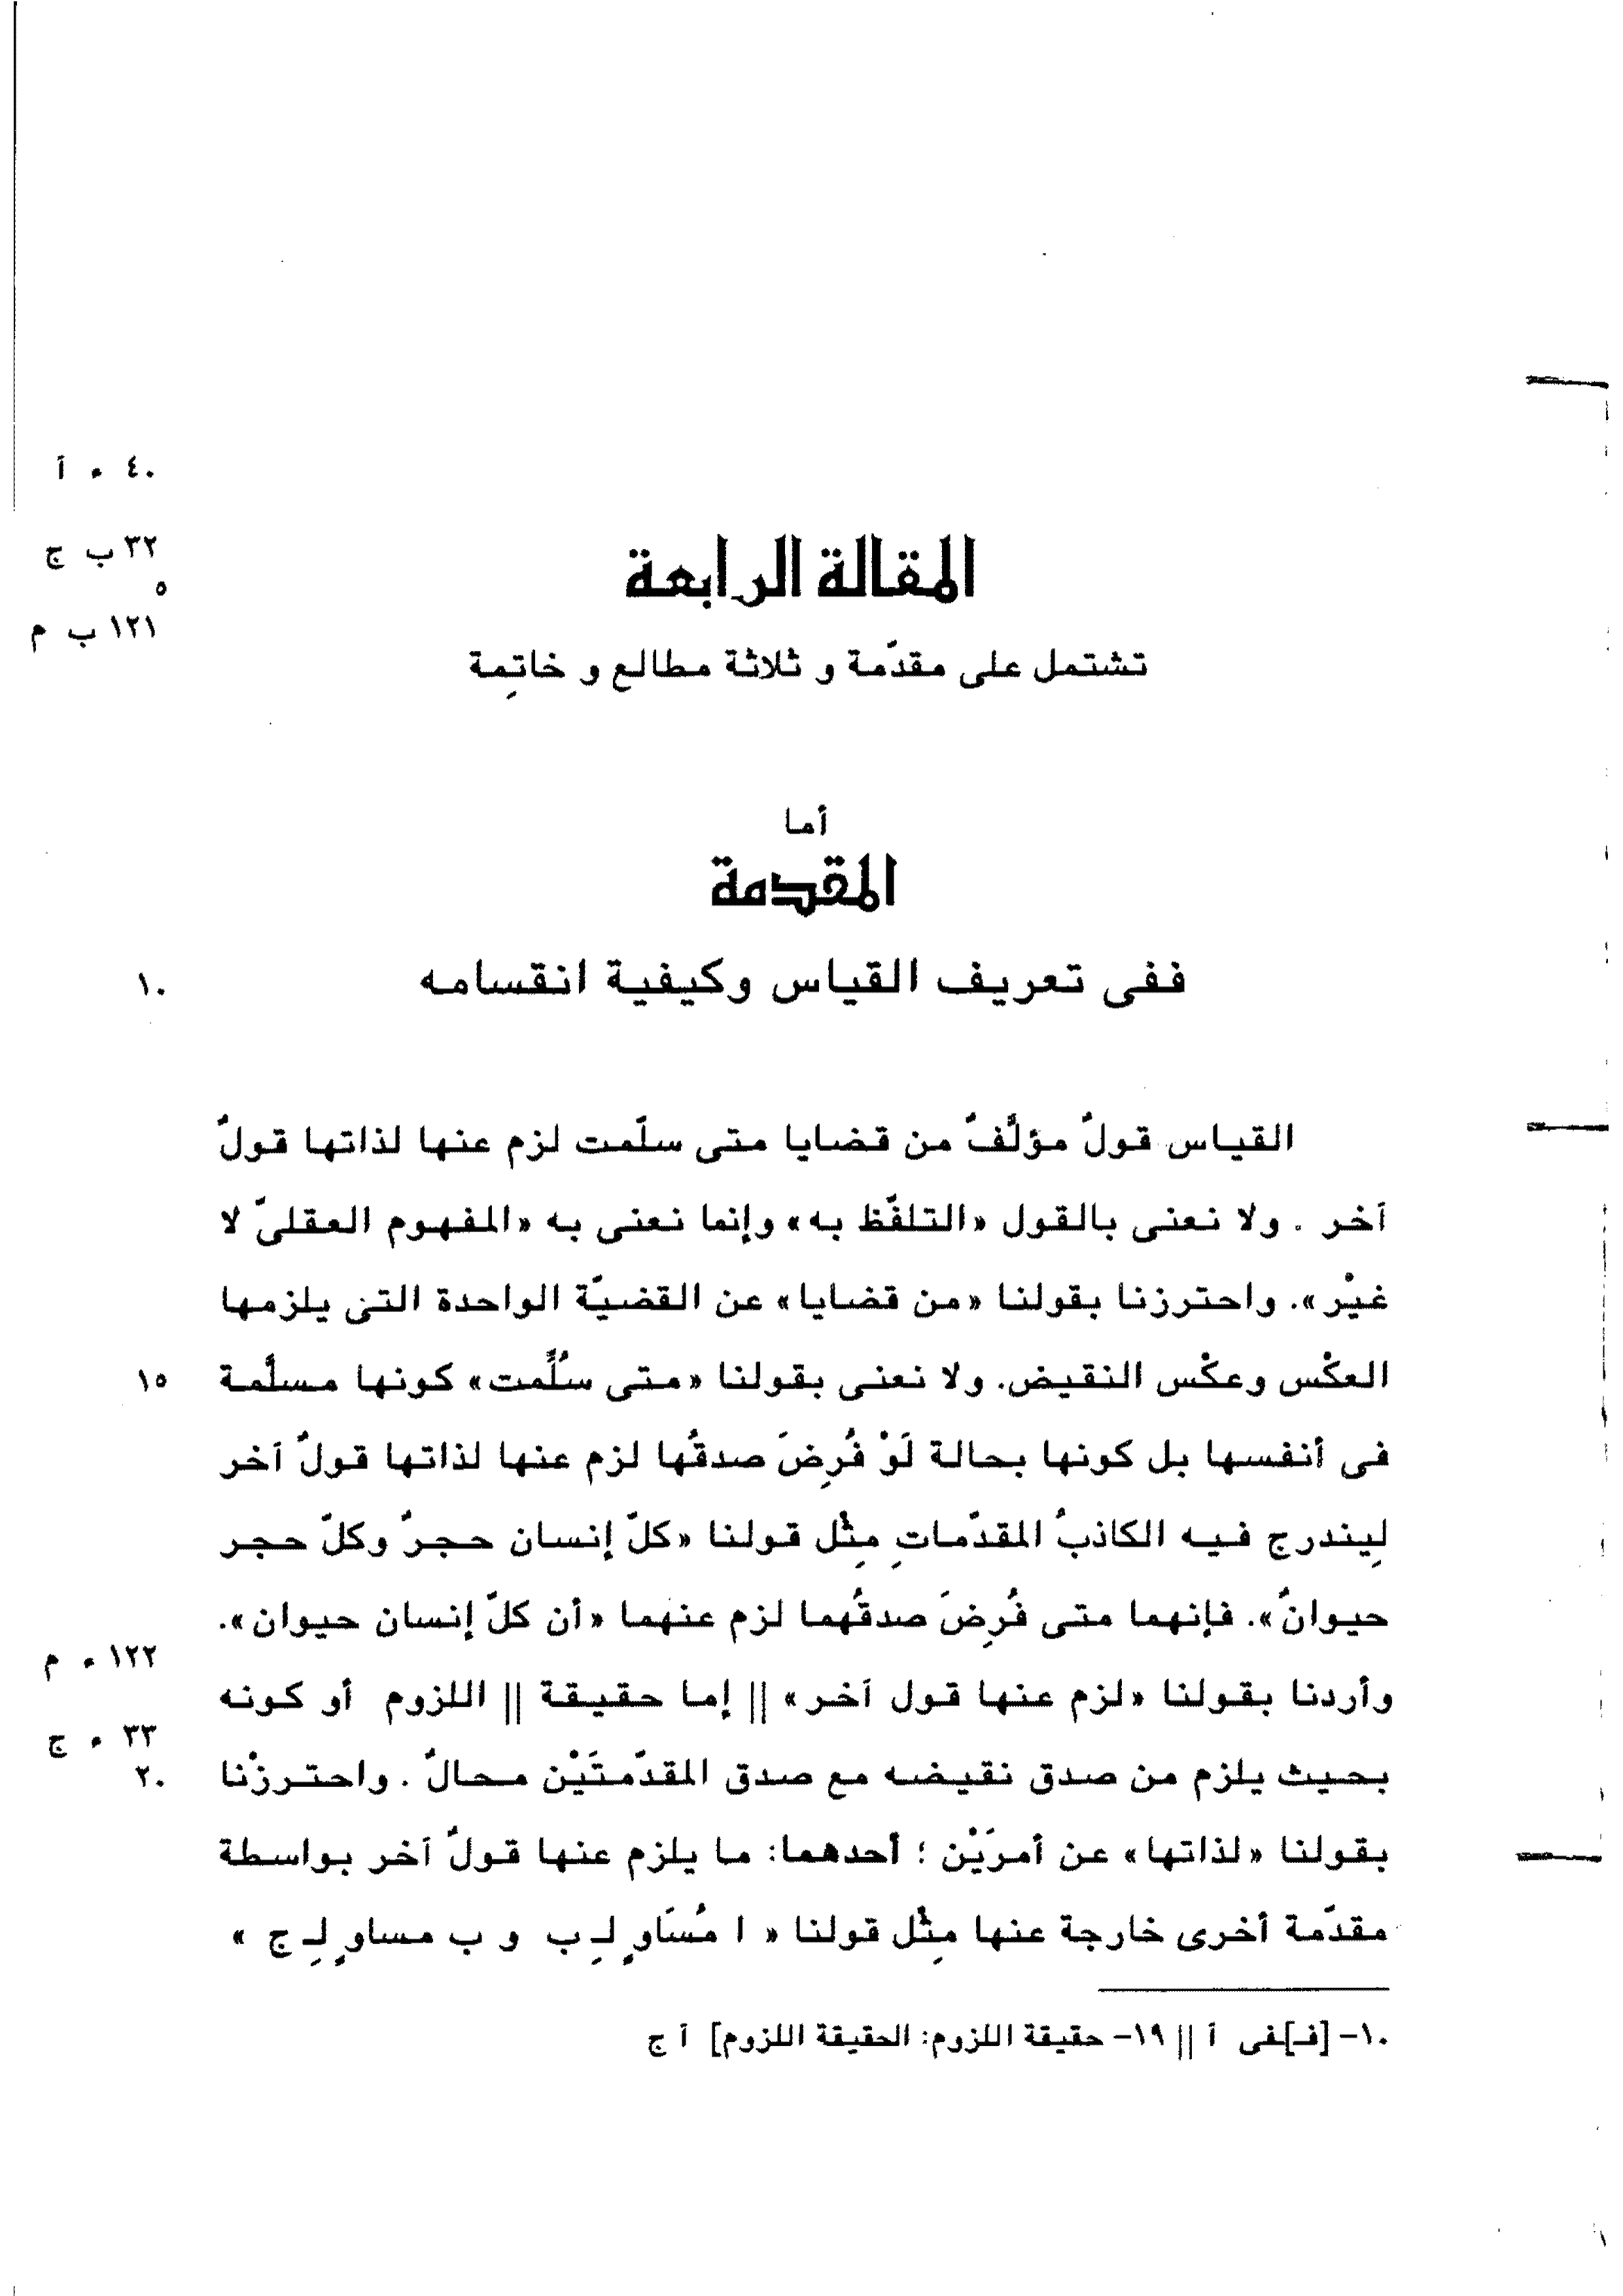 ٤٠ ء آ
المقالة الرابعة
٣٢ ب ج
٥
تشتمل على مقدّمة و ثلاثة مطالع و خاتِمة
١٢١ ب م
أما
المقدمة
ففى تعريف القياس وكيفية انقسامه
١٠
القياس قولٌ مؤلَّفٌ من قضايا متى سلّمت لزم عنها لذاتها قولٌ
آخر . ولا نعنى بالقول «التلفّظ به» وإنما نعنى به «المفهوم العقلىّ لا
غيْر». واحترزنا بقولنا «من قضايا» عن القضيّة الواحدة التى يلزمها
العكْس وعكْس النقيض. ولا نعنى بقولنا «متى سُلِّمت» كونها مسلَّمة
١٥
فى أنفسها بل كونها بحالة لَوْ فُرِضَ صدقُها لزم عنها لذاتها قولٌ آخر
لِيندرج فيه الكاذبُ المقدّماتِ مِثْل قولنا «كلّ إنسان حجرٌ وكلّ حجر
حيوانٌ». فإنهما متى فُرِضَ صدقُهما لزم عنهما «أن كلّ إنسان حيوان».
١٢٢ ء م
وأردنا بقولنا «لزم عنها قول آخر» || إما حقيقة || اللزوم أو كونه
٣٣ ء ج
بحيث يلزم من صدق نقيضه مع صدق المقدّمتَيْن محالٌ . واحترزْنا
٢٠
بقولنا «لذاتها» عن أمرَيْن ؛ أحدهما: ما يلزم عنها قولٌ آخر بواسطة
مقدّمة أخرى خارجة عنها مِثْل قولنا « ا مُسَاوٍ لِـ ب و ب مساوٍ لِـ ج »
١٠- [فـ]ـفى آ || ١٩- حقيقة اللزوم: الحقيقة اللزوم] آ ج